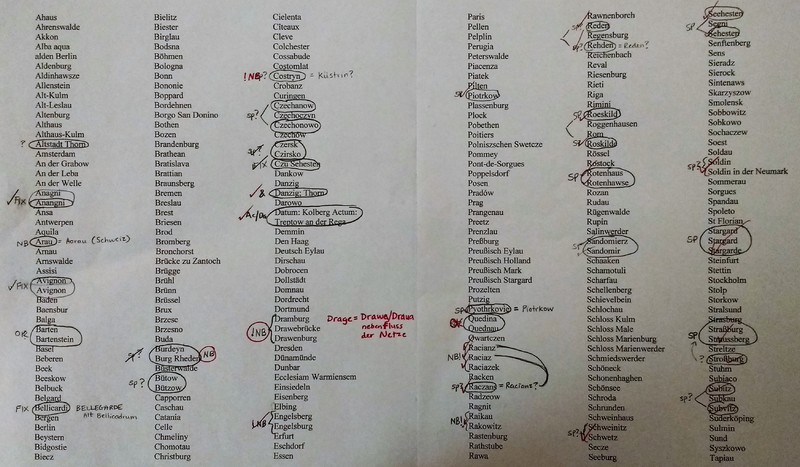 Ahaus
Ahrenswalde
Akkon
Alba aqua
alden Berlin
Aldenburg
Aldinhawsze
Allenstein
Alt-Kulm
Alt-Leslau
Altenburg
Althaus
Althaus-Kulm
? Altstadt Thorn
Amsterdam
An der Grabow
An der Leba
An der Welle
Anagni
FIX Anangni
Ansa
Antwerpen
Aquila
NB Arau = Aarau (Schweiz)
Arnau
Arnswalde
Assisi
Avignon
FIX Avignon
Baden
Baensbur
Balga
Barten
OR Bartenstein
Basel
Beberen
Beek
Beeskow
Belbuck
Belgard
FIX Bellicardi BELLEGARDE
Alt Bellicadrum
Bergen
Berlin
Beystern
Bidgostie
Biecz
Bielitz
Biester
Birglau
Bodsna
Böhmen
Bologna
Bonn
Bononie
Boppard
Bordehnen
Borgo San Donino
Bothen
Bozen
Brandenburg
Brathean
Bratislava
Brattian
Braunsberg
Bremen
Breslau
Brest
Briesen
Brod
Bromberg
Bronchorst
Brücke zu Zantoch
Brügge
Brühl
Brünn
Brüssel
Brux
Brzesc
Brzesno
Buda
Burdeyn
Burg Rheden NB
Büsterwalde
Bütow
sp? Bützow
Capporren
Caschau
Catania
Celle
Chmeliny
Chomotau
Christburg
Cielenta
Cîteaux
Cleve
Colchester
Cossabude
Costomlat
!NB sp? Costryn = Küstrin?
Crobanz
Curingen
Czechanow
sp? Czechoczyn
Czechonowo
Czechow
Czersk
Czirsko
FIX Czu Sehesten
Dankow
Danzig
& Danzig; Thorn
Darowo
Ac/Da Datum: Kolberg Actum:
Treptow an der Rega
Demmin
Den Haag
Deutsch Eylau
Dirschau
Dobrocen
Dollstädt
Domnau
Dordrecht
Dortmund
Dramburg
!NB Drawebrücke
Drawenburg
Drage = Drawa/Draua
nebenfluss
der Netze
Dresden
Dünamünde
Dunbar
Ecclesiam Warmiensem
Einsiedeln
Eisenberg
Elbing
!NB Engelsberg
Engelsburg
Erfurt
Eschdorf
Essen
Paris
Pellen
Pelplin
Perugia
Peterswalde
Piacenza
Piatek
Pilten
Piotrkow
Plassenburg
Plock
Pobethen
Poitiers
Polniszschen Swetzce
Pommey
Pont-de-Sorgues
Poppelsdorf
Posen
Pradów
Prag
Prangenau
Preetz
Prenzlau
Preßburg
Preußisch Eylau
Preußisch Holland
Preußisch Mark
Preußisch Stargard
Prozelten
Putzig
SP Pyothrkovie = Piotrkow
Quedina
Quednau
Qwartczen
Racianz
NB! Raciaz
Raciazek
Racken
sp? Raczans = Racians?
Radzeow
Ragnit
Raikau
NB! Rakowitz
Rastenburg
Rathstube
Rawa
Rawnenborch
SP Reden
Regensburg
Rehden = Reden?
Reichenbach
Reval
Riesenburg
Rieti
Riga
Rimini
Roeskild
Roggenhausen
Rom
Roskilde
Rössel
Rostock
Rotenhaus
SP Rotenhawse
Rozan
Rudau
Rügenwalde
Rupin
Salinwerder
Sandomierz
Sandomir
Schaaken
Schamotuli
Scharfau
Schellenberg
Schievelbein
Schlochau
Schloss Male
Schloss Marienburg
Schloss Marienwerder
Schmiedswerder
Schöneck
Schonenhaghen
Schönsee
Schroda
Schrunden
Schweinhaus
Schweinitz
sp? Schwetz
Secze
Seeburg
Seehesten
SP Segni
Sehesten
Senftenberg
Sens
Sieradz
Sierock
Sintenaws
Skarzyszow
Smolensk
Sobbowitz
Sobkowo
Sochaczew
Soest
Soldau
Soldin
sp? Soldin in der Neumark
Sommerau
Sorgues
Spandau
Spoleto
St Florian
Stargard
SP Stargard
Stargarde
Steinfurt
Stettin
Stockholm
Stolp
Storkow
Stralsund
Strasburg
SP Straßburg
Straussberg
Streltze
? Stroßburg
Stuhm
Subiaco
Subitz
SP Subkau
Subvitz
Süderköping
Sulmin
Sund
Syszkowo
Tapiau